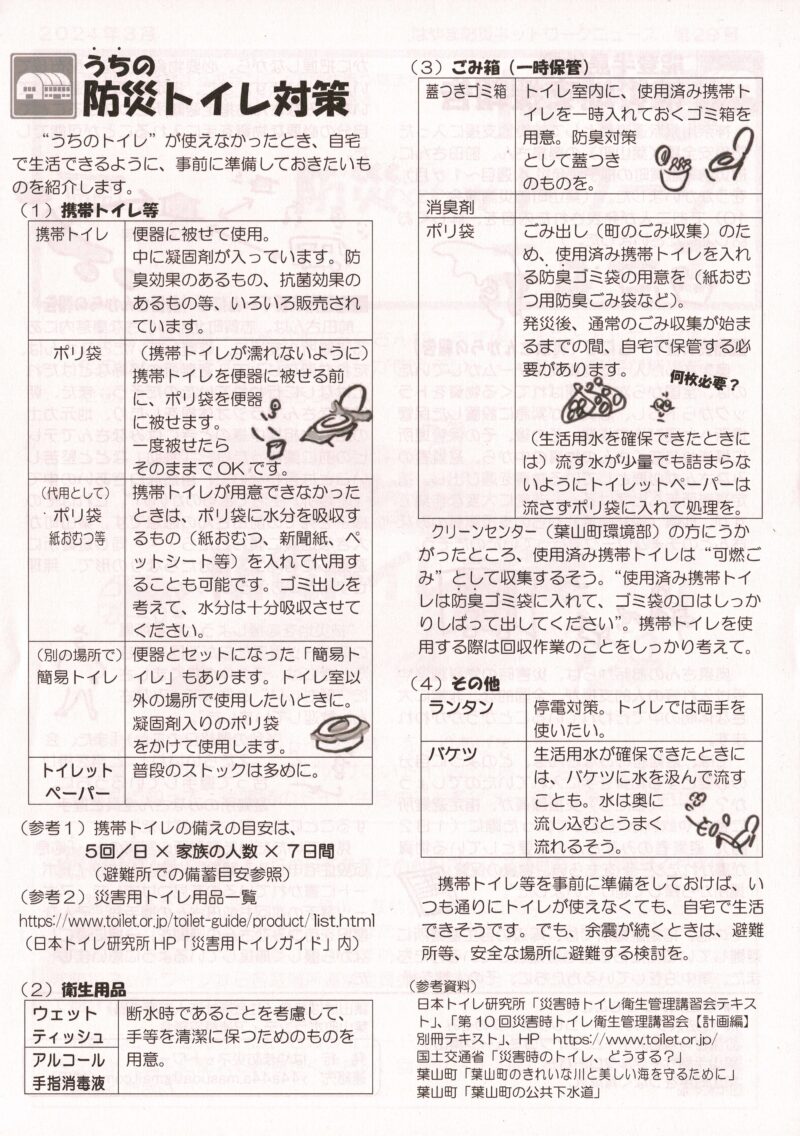 うちの
防災トイレ対策
“うちのトイレ”が使えなかったとき、自宅
で生活できるように、事前に準備しておきたいも
のを紹介します。
（1）携帯トイレ等
携帯トイレ
便器に被せて使用。
中に凝固剤が入っています。防
臭効果のあるもの、抗菌効果の
あるもの等、いろいろ販売され
ています。
ポリ袋
（携帯トイレが濡れないように）
携帯トイレを便器に被せる前
に、ポリ袋を便器
に被せます。
一度被せたら
そのままでOKです。
（代用として）
ポリ袋
紙おむつ等
携帯トイレが用意できなかった
ときは、ポリ袋に水分を吸収す
るもの（紙おむつ、新聞紙、ペ
ットシート等）を入れて代用す
ることも可能です。ゴミ出しを
考えて、水分は十分吸収させて
ください。
（別の場所で）
簡易トイレ
便器とセットになった「簡易ト
イレ」もあります。トイレ室以
外の場所で使用したいときに。
凝固剤入りのポリ袋
をかけて使用します。
トイレット
ペーパー
普段のストックは多めに。
（参考1）携帯トイレの備えの目安は、
5回／日×家族の人数×7日間
（避難所での備蓄目安参照）
（参考2）災害用トイレ用品一覧
https://www.toilet.or.jp/toilet-guide/product/list.html
（日本トイレ研究所HP「災害用トイレガイド」内）
（2）衛生用品
ウェット
ティッシュ
アルコール
手指消毒液
断水時であることを考慮して、
手等を清潔に保つためのものを
用意。
（3）ごみ箱（一時保管）
蓋つきゴミ箱
トイレ室内に、使用済み携帯ト
イレを一時入れておくゴミ箱を
用意。防臭対策
として蓋つき
のものを。
消臭剤
ポリ袋
ごみ出し（町のごみ収集）のた
め、使用済み携帯トイレを入れ
る防臭ゴミ袋の用意を（紙おむ
つ用防臭ごみ袋など）。
発災後、通常のごみ収集が始ま
るまでの間、自宅で保管する必
要があります。
何枚必要？
（生活用水を確保できたときに
は）流す水が少量でも詰まらな
いようにトイレットペーパーは
流さずポリ袋に入れて処理を。
クリーンセンター（葉山町環境部）の方にうか
がったところ、使用済み携帯トイレは“可燃ご
み”として収集するそう。“使用済み携帯トイ
レは防臭ゴミ袋に入れて、ゴミ袋の口はしっか
りしばって出してください”。携帯トイレを使
用する際は回収作業のことをしっかり考えて。
（4）その他
ランタン
停電対策。トイレでは両手を
使いたい。
バケツ
生活用水が確保できたときに
は、バケツに水を汲んで流す
ことも。水は奥に
流し込むとうまく
流れるそう。
携帯トイレ等を事前に準備をしておけば、い
つも通りにトイレが使えなくても、自宅で生活
できそうです。でも、余震が続くときは、避難
所等、安全な場所に避難する検討を。
（参考資料）
日本トイレ研究所「災害時トイレ衛生管理講習会テキス
ト」、「第10回災害時トイレ衛生管理講習会【計画編】
別冊テキスト」、HP https://www.toilet.or.jp/
国土交通省「災害時のトイレ、どうする？」
葉山町「葉山町のきれいな川と美しい海を守るために」
葉山町「葉山町の公共下水道」